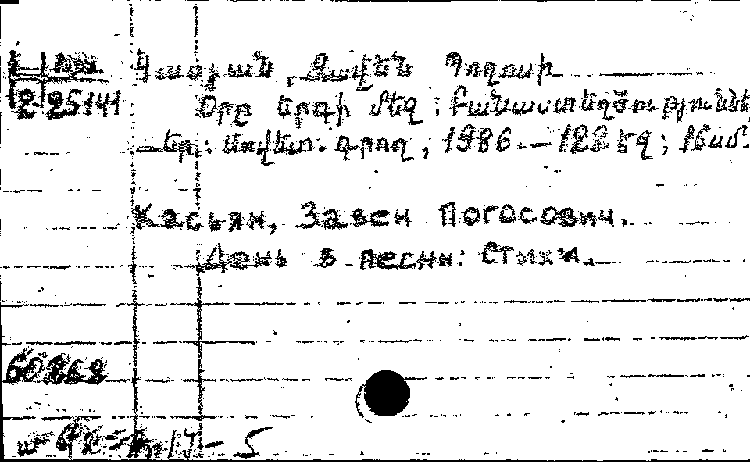 Կասյան, Զավեն Պողոսի
2 25141 Օրը երգի մեջ: Բանաստեղծություններ
Եր.: Սովետ. գրող, 1986.— 122 էջ; 16սմ.
Касьян, Завен Погосович.
День в песни: Стихи.
60868